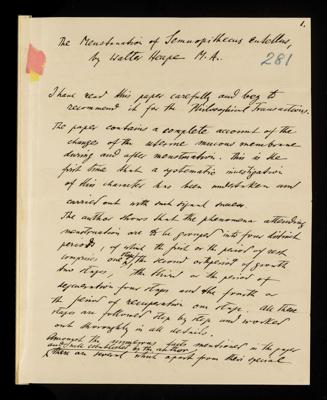 1.
The Menstruation of Semnopithecus entellus,
by Walter Heape M.A.
281
I have read this paper carefully and beg to
recommend it for the Philosophical Transactions.
The paper contains a complete account of the
changes of the uterine mucous membrane
during and after menstruation. This is the
first time that a systematic investigation
of this character has been undertaken and
carried out with such signal success
The author shows that the phenomena attending
menstruation are to be grouped into four distinct
periods, of which the first or the period of rest
comprises one stage, the second or period of growth
two stages, the third or the period of
degeneration four stages and the fourth or
the period of recuperation one stage. All these
stages are followed step by step and worked
out thoroughly in all details.
Amongst the numerous facts mentioned in the paper
and well established by the author
there are several which apart from their special